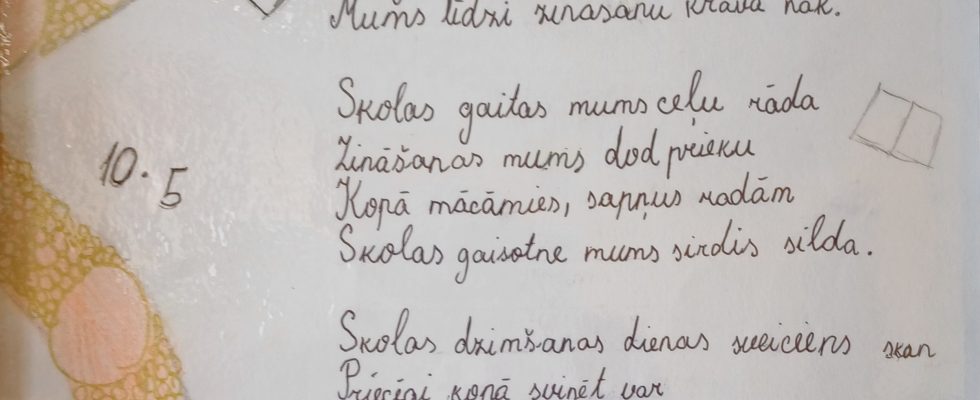 Mums līdzi zināšanu krava nāk.
Skolas gaitas mums ceļu rāda
10.5
Zināšanas mums dod prieku
Kopā mācāmies, sapņus radām
Skolas gaisotne mums sirdis silda.
Skolas dzimšanas dienas sveiciens skan
Priecīgi kopā svinēt var